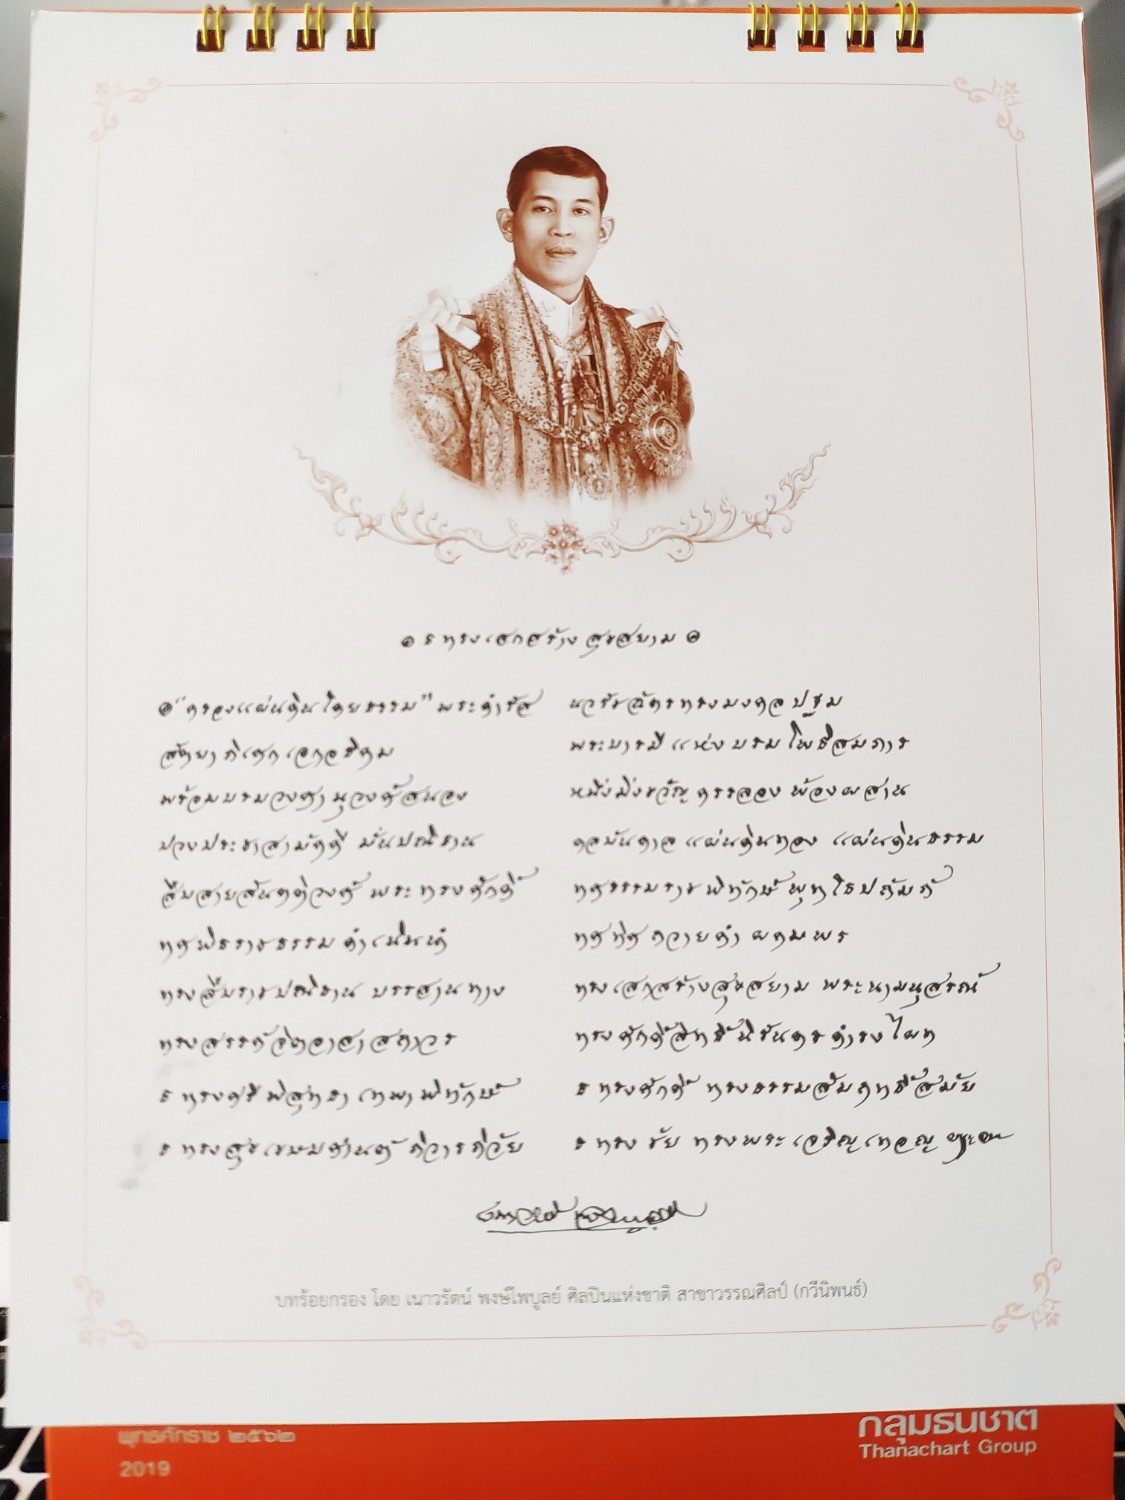 ๏ ธ ทรงเสกสร้าง สุขสยาม ๏
๏ “ครองแผ่นดินโดยธรรม” พระดำรัส นวรัชฉัตรทรงมงคลปฐม
สัตยาภิเศกเอกอธิคม พระบารมีแห่งบรมโพธิสมภาร
พร้อมบรมวงศานุวงศ์สนอง หนึ่งมิ่งขวัญครรลองพ้องผสาน
ปวงประชาสามัคคี มั่นปณิธาน ดลบันดาลแผ่นดินทอง แผ่นดินธรรม
สืบสายสันตติวงศ์ พระทรงศักดิ์ ทศธรรมราชพิทักษ์พุทโธปถัมภ์
ทศพิธราชธรรมดำเนินนำ ทศทิศถวายคำ
ทรงสืบราชปณิธาน บรรสานทาง ทรงเสกสร้างสุขสยาม พระนามนุสรณ์
ทรงสรรค์จิตอาสาสถาวร ทรงศักดิ์สิทธิ์นิรันดรดำรง
ธ ทรงศรีพิสุทธา เทพาพิทักษ์ ธ ทรงศักดิ์ ทรงธรรมสัมฤทธิ์สมัย
ธ ทรงสุขเขษมศานติ์ ธ ทรงชัย ทรงพระเจริญ เทอญ
บทร้อยกรอง โดย เนาวรัตน์ พงษ์ไพบูลย์ ศิลปินแห่งชาติ สาขาวรรณศิลป์ (กวีนิพนธ์)
พุทธศักราช ๒๕๖๒
2019
กลุ่มธนชาต
Thanachart Group